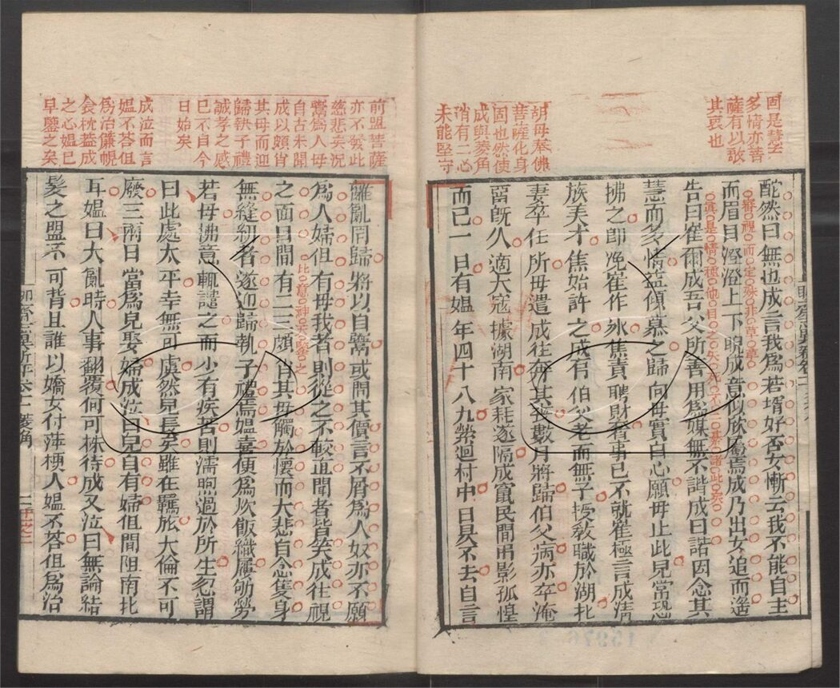 固是慧玄
多情亦菩
薩有以啟
其衷也
胡母奉佛
菩薩化身
固也然使
成與菱角
稍有二心
未能堅守
酡然曰無也成言我為若壻好否女慚云我不能自主
而眉目澄澄上下睨成意似欣屬焉成乃出女追而遙
告曰崔爾成吾父所善用為媒無不諧成曰諾因念其
慧而多情益傾慕之歸向母實白心願母止此兒常恐
拂之即浼崔作氷焦責聘財奢事已不就崔極言成清
族美才焦始許之成有伯父老而無子授教職於湖北
妻卒任所母遣成往奔其喪數月將歸伯父病亦卒淹
留既久適大寇據湖南家耗遂隔成竄民間弔影孤惶
而已一日有媼年四十八九縈迴村中日昃不去自言
前盟菩薩
亦不爽此
慈悲矣況
鬻為人母
自古未聞
成以頗肖
其母而迎
歸執子禮
誠孝之感
已不自今
日始矣
成泣而言
媼不荅但
為治簾幌
衾枕蓋成
之心媼已
早鑒之矣
離亂罔歸將以自鬻或問其價言不屑為人奴亦不願
為人婦但有母我者則從之不較直聞者皆笑成往視
之面目間有二三頗肖其母觸於懷而大悲自念隻身
無縫紉者遂迎歸執子禮焉媼喜便為炊飯織屨劬勞
若母拂意輒譴之而少有疾苦則濡煦過於所生忽謂
曰此處太平幸無可虞然兒長矣雖在羈旅大倫不可
廢三兩日當為兒娶婦成泣曰兒自有婦但間阻南北
耳媼曰大亂時人事翻覆何可株待成又泣曰無論結
髮之盟不可背且誰以嬌女付萍梗人媼不荅但為治